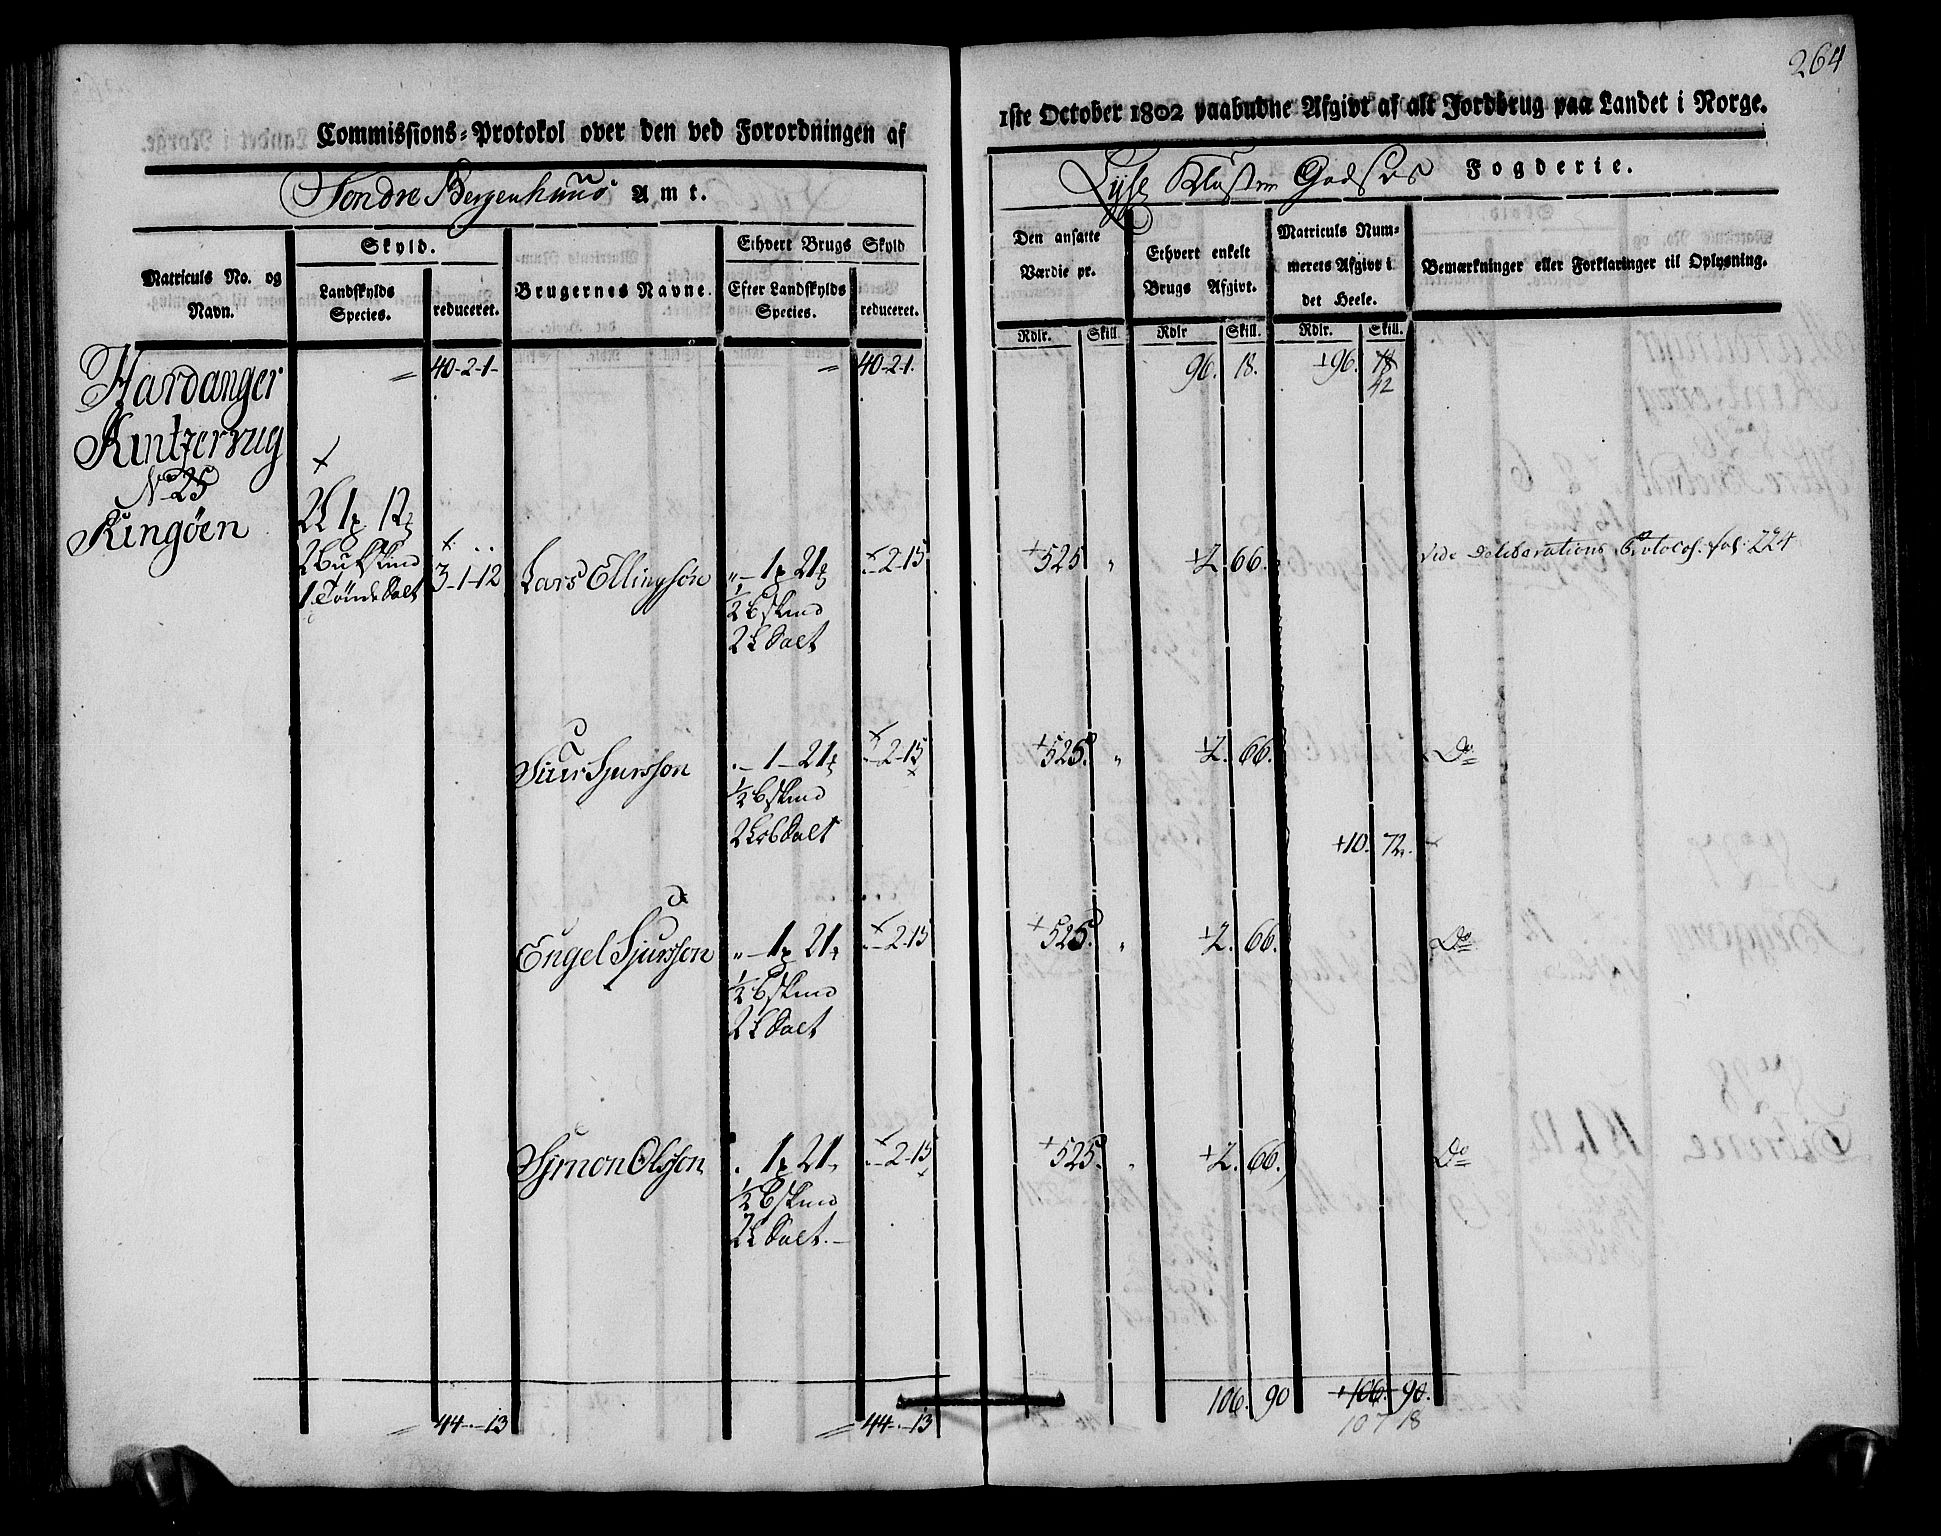 264
Commissions-Protokol over den ved Forordningen af
1ste October 1802 paabudne Afgivt af alt Jordbrug paa Landet i Norge.
Søndre Bergenhuus Amt.
Lyse Kloster Godses Fogderie.
Matriculs No. og Navn.
Skyld.
Landskylds Species.
reduceret.
Brugernes Navne.
Ethvert Brugs Skyld
Efter Landskylds Species.
reduceret.
Den ansatte Værdie pr.
Rdlr. Skill
Ethvert enkelt Brugs Afgivt.
Rdlr Skill.
Matriculs Nummerets Afgivt i det Heele.
Rdlr. Skill.
Bemærkninger eller Forklaringer til Oplysning.
= 40-2-1- = 40-2-1. 96. 18. +96. 18
42
Hardanger
Kintzervug
No 25
Ringøen
2 Bukskind
1 Tønde Salt 3-1-12
Lars Ellingsøn „-1 21 -2-15 +525 „ +2. 66. Vide Deliberations Protocol. fol. 224
½ Bskind
2 L Salt
Siur Sjursson .-1-21 -2-15 +525. „ +2. 66. Do
½ Bskind
2 Lob Salt
+10. 72.
Engel Sjursson „-1 21 -2-15 +525. „ +2. 66. Do
½ Bskind
2 L Salt
Simon Olsson . 1 21 -2-15 +525. „ +2. 66. Do
½ Bskind
2 L Salt.
= 44-.-13 = 44-.-13 106. 90 +106. 90.
107 18